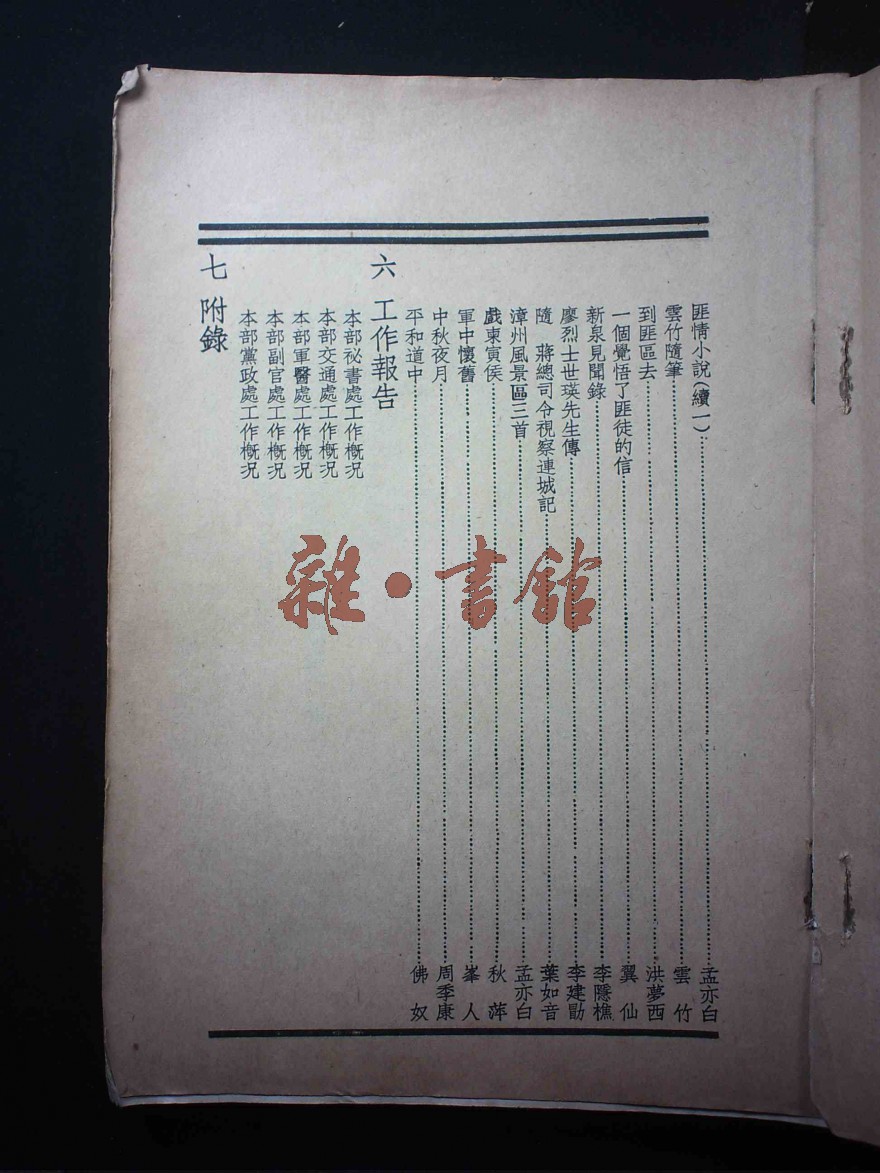 匪情小說(續一)…………孟亦白
雲竹隨筆…………雲竹
到匪區去…………洪夢西
一個覺悟了匪徒的信…………翼仙
新泉見聞錄…………李隱樵
廖烈士世瑛先生傳…………李建勛
隨　蔣總司令視察連城記…………葉如音
漳州風景區三首…………孟亦白
戲柬寅侯…………秋萍
軍中懷舊…………峯人
中秋夜月…………周季康
平和道中…………佛奴
六　工作報告
本部祕書處工作概況
本部交通處工作概況
本部軍醫處工作概況
本部副官處工作概況
本部黨政處工作概況
七　附錄
雜·書館